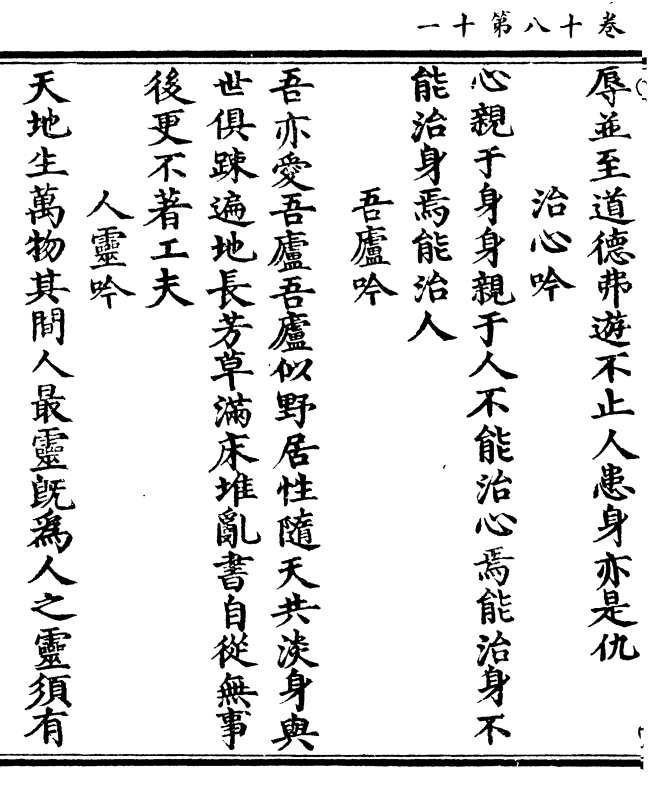 卷十八第十一
辱並至道德弗遊不止人患身亦是仇
治心吟
心親于身身親于人不能治心焉能治身不
能治身焉能治人
吾廬吟
吾亦愛吾廬吾廬似野居性隨天共淡身與
世俱踈遍地長芳草滿床堆亂書自從無事
後更不著工夫
人靈吟
天地生萬物其間人最靈既為人之靈須有